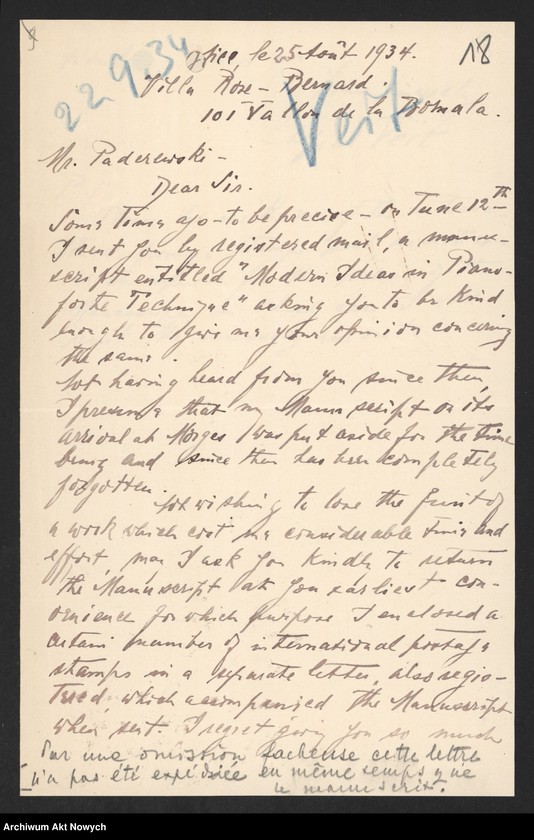 22.9.34
Nice, le 25 Août 1934.
18
Villa Rose-Bernard.
101 Vallon de la
Mr. Paderewski-
Dear Sir.
Some time ago - to be precise - on June 12th
I sent you by registered mail, a manu-
script entitled "Modern Ideas in Piano-
forte Technique" asking you to be kind
enough to give me your opinion concerning
the same.
Not having heard from you since then,
I presume that my Manuscript on its
arrival at Morges was put aside for the time
being and since then has been completely
forgotten.
Not wishing to lose the fruit of
a work which cost me considerable time and
effort, may I ask you kindly to return
the Manuscript at you earliest con-
venience for which purpose I enclosed a
certain number of international postage
stamps in a separate letter, also regis-
tered, which accompanied the Manuscript
when sent. I regret giving you so much
Par une omission facheuse cette lettre
n'a pas été expédiée en même temps que
le manuscrit.
Archiwum Akt Nowych